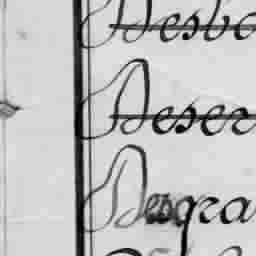 Desbo
Deser
Desgra